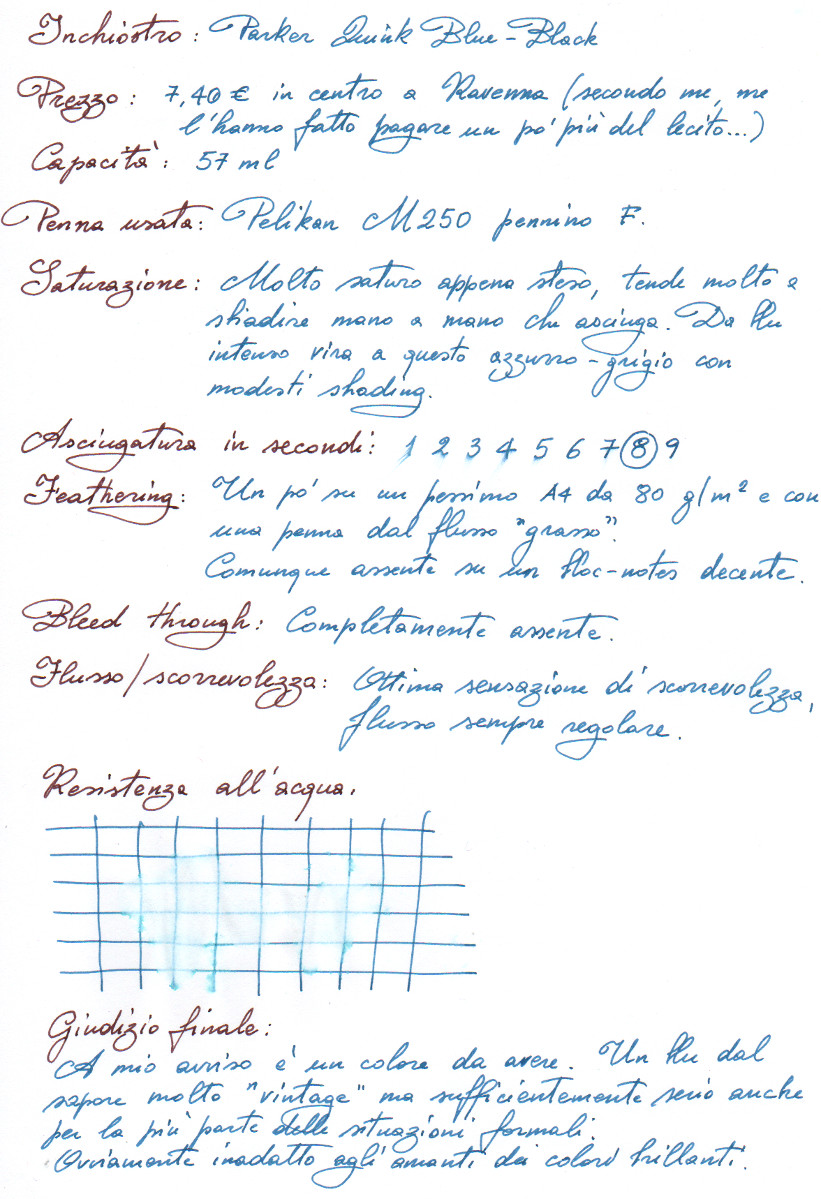 Inchiostro: Parker Quink Blue-Black
Prezzo: 7,40 € in centro a Ravenna (secondo me, me
l'hanno fatto pagare un po' più del lecito...)
Capacità: 57 ml
Penna usata: Pelikan M250 pennino F.
Saturazione: Molto saturo appena steso, tende molto a
sbiadire mano a mano che asciuga. Da blu
intenso vira a questo azzurro-grigio con
modesti shading.
Asciugatura in secondi: 1 2 3 4 5 6 7 8 9
Feathering: Un po' su un pessimo A4 da 80 g/m² e con
una penna dal flusso "grasso".
Comunque assente su un bloc-notes decente.
Bleed through: Completamente assente.
Flusso/scorrevolezza: Ottima sensazione di scorrevolezza,
flusso sempre regolare.
Resistenza all'acqua.
Giudizio finale:
A mio avviso è un colore da avere. Un blu dal
sapore molto "vintage" ma sufficientemente serio anche
per la più parte delle situazioni formali.
Ovviamente inadatto agli amanti dei colori brillanti.